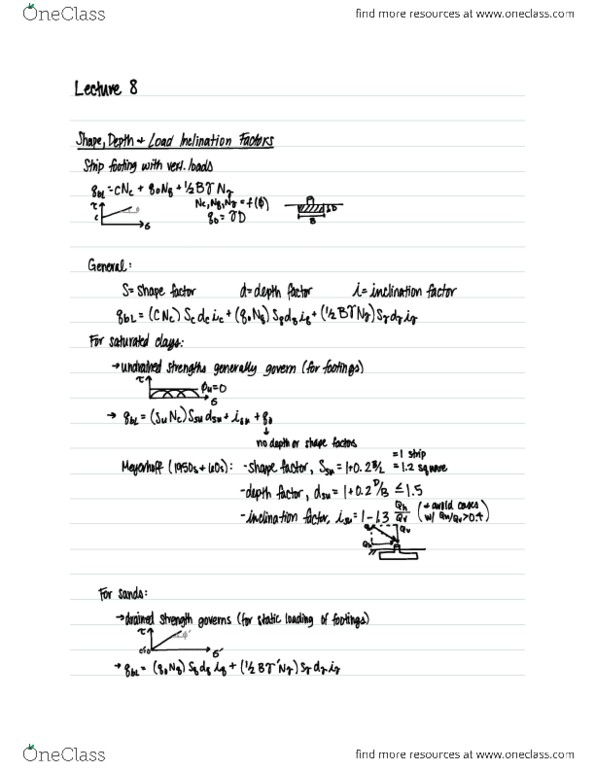 OneClass find more resources at www.oneclass.com
Lecture 8
Shape, Depth + Load Inclination Factors
Strip footing with vert. loads
q_bL = CNc + q₀Nq + ½BγNγ
τ
Nc, Nq, Nγ = f(ϕ)
D
c
σ
q₀ = γD
B
General:
S = shape factor d = depth factor i = inclination factor
q_bL = (CNc) Sc dc ic + (q₀Nq) Sq dq iq + (½BγNγ) Sγ dγ iγ
For saturated clays:
→ undrained strengths generally govern (for footings)
τ
ϕu = 0
σ
→ q_bL = (Su Nc) Ssu dsu + isu + q₀
↓
no depth or shape factors
Meyerhoff (1950s + 60s): - shape factor, Ssu = 1 + 0.2 B/L = 1 strip
= 1.2 square
- depth factor, dsu = 1 + 0.2 D/B ≤ 1.5
- inclination factor, isu = 1 - 1.3 Qh/Qv (+ avoid cases
w/ Qh/Qv > 0.4)
Qv
Qh
For sands:
→ drained strength governs (for static loading of footings)
τ
ϕ'
σ'
→ q_bL = (q₀Nq) Sq dq iq + (½Bγ'Nγ) Sγ dγ iγ
OneClass find more resources at www.oneclass.com